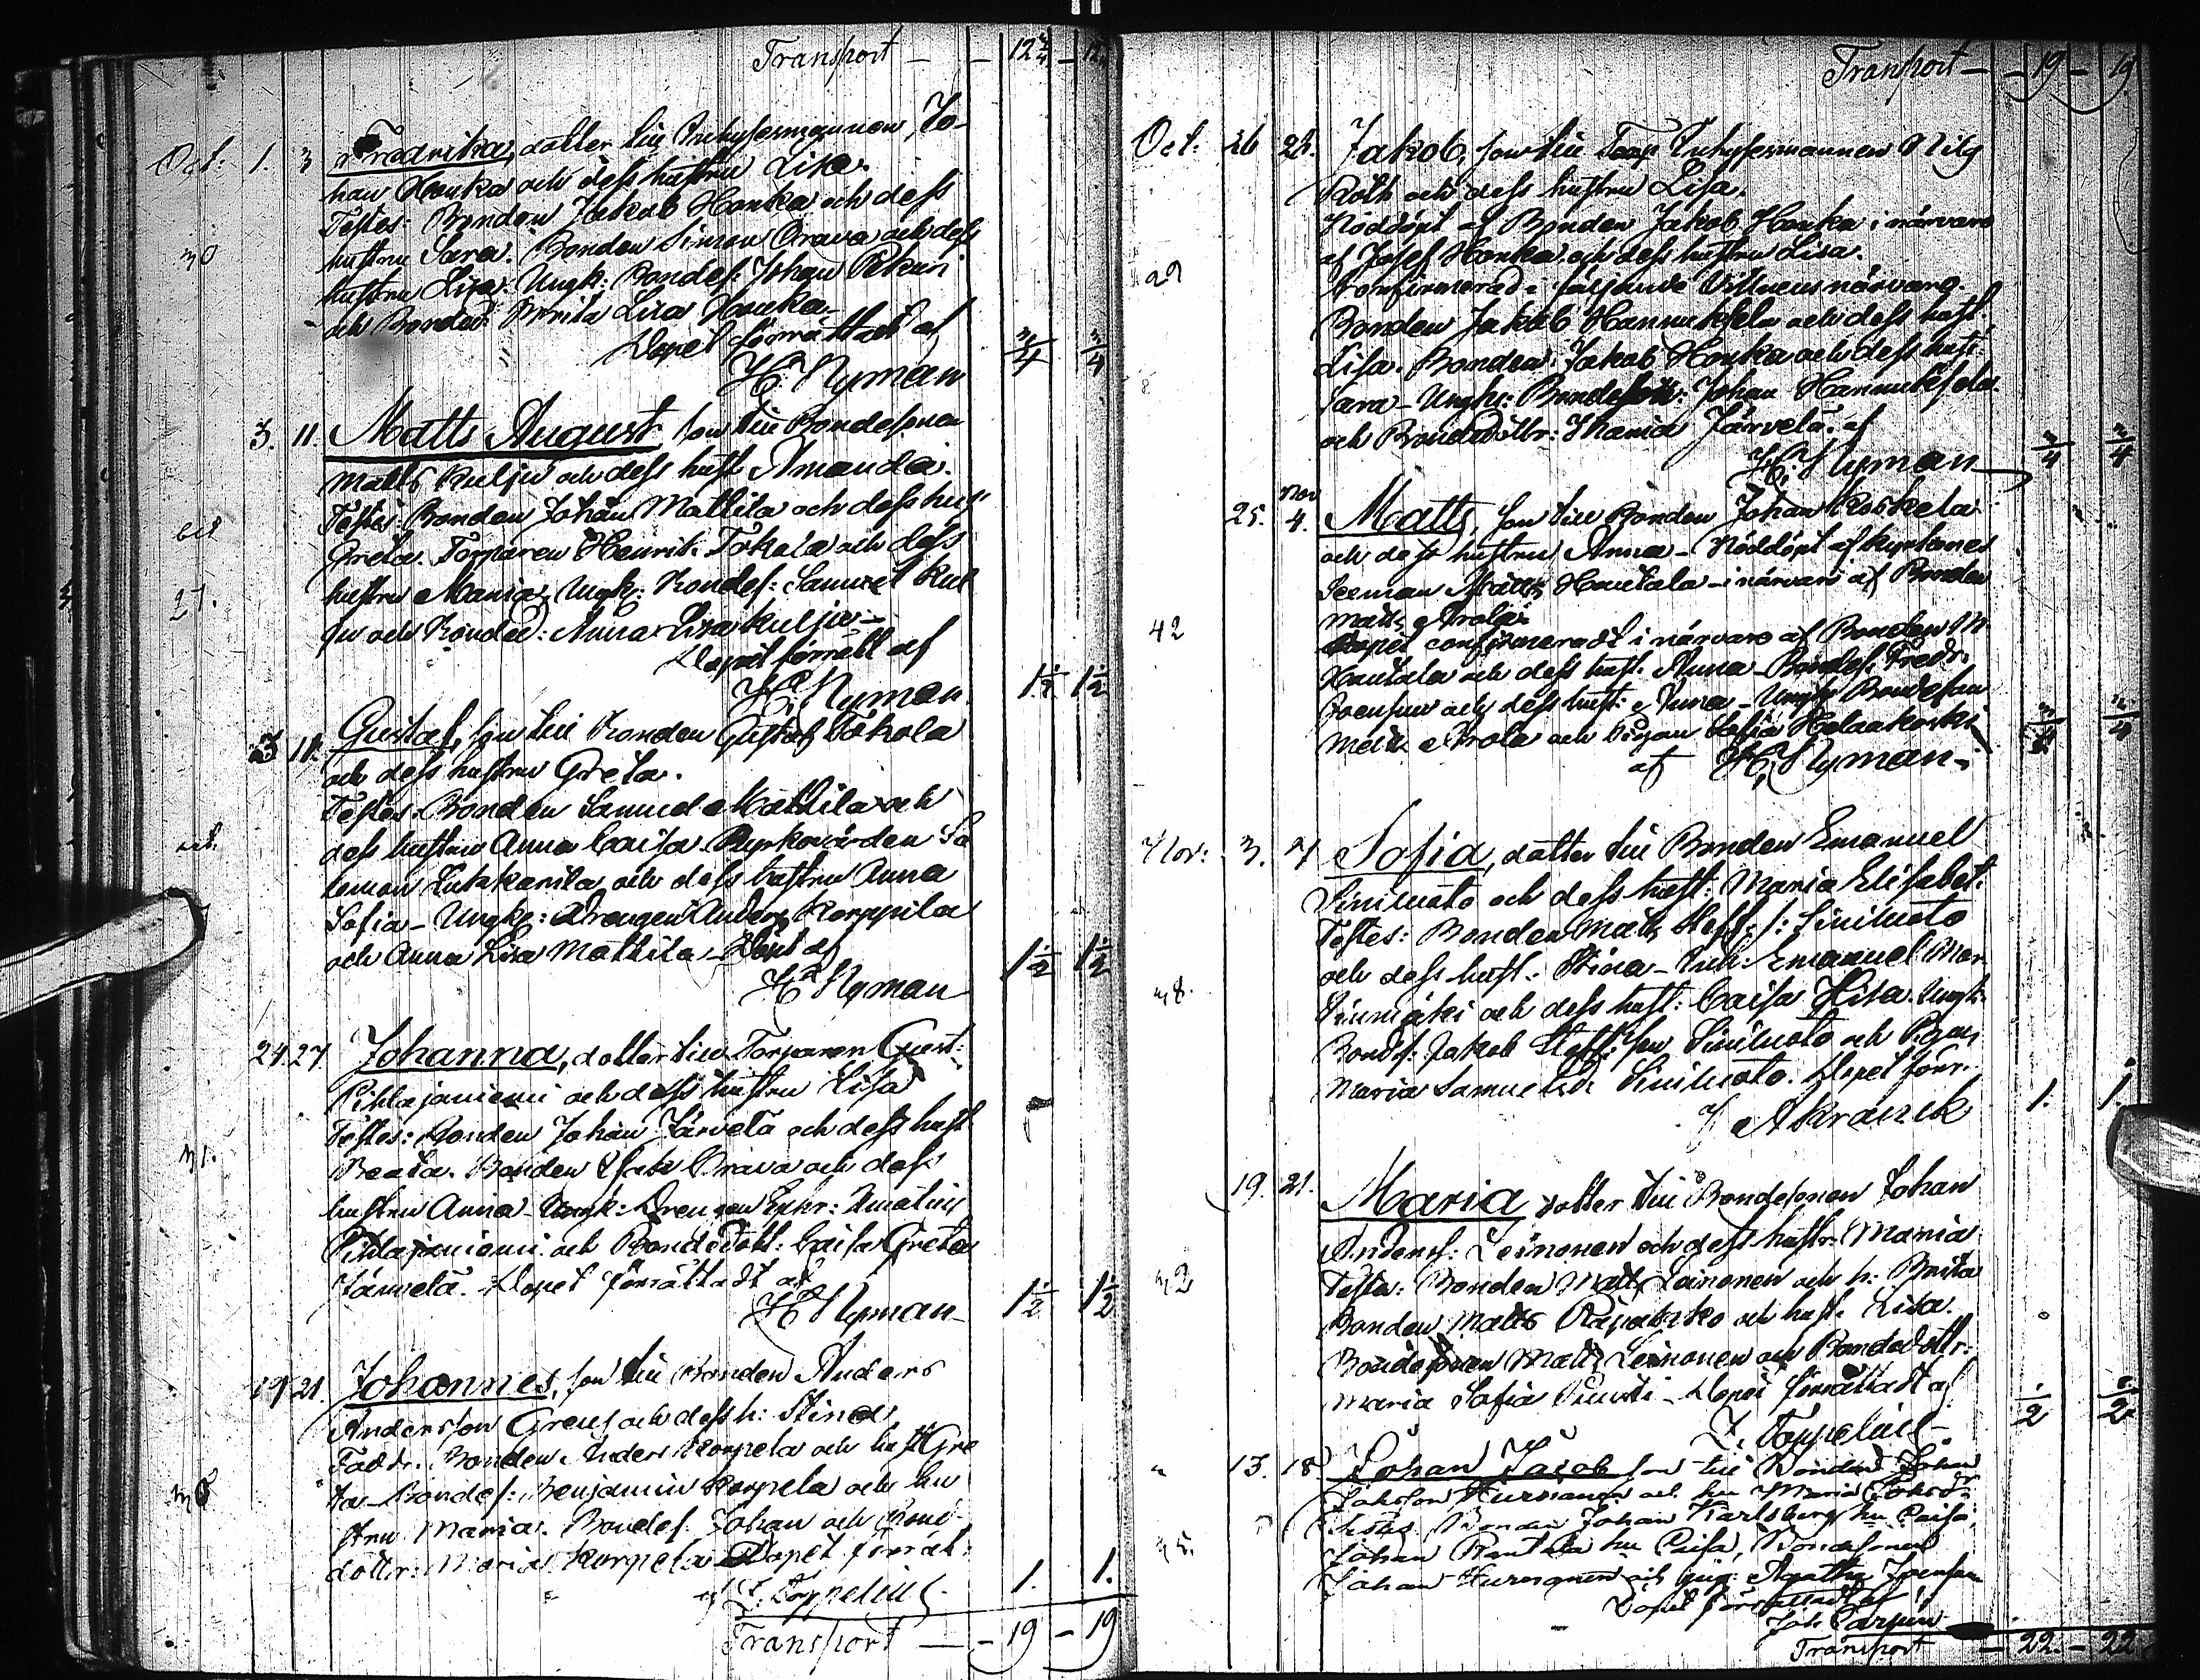 Transport — — 12 3/4 — 12
Oct: 1. 3 Fredrika, dotter till Inhysesmannen, Jo-
han Honka och dess hustru Lisa.
Testes: Bonden Jakob Honka och dess
30 hustru Sara. Bonden Simon Orava och dess
hustru Lisa. Ungk: Bondes: Johan Pekuri
och Bonded: Brita Lisa Honka.
Dopet förrättadt af 3/4 3/4
H. Nyman
3. 11. Matts August, son till Bondesonen
Matts Kulju och dess hust Amanda.
Testes: Bonden Johan Mattila och dess hust
Greta. Torparen Henrik Tokola och dess
27. hustru Maria, Ungk: Bondes: Samuel Kul
ju och Bonded: Anna Lisa Kulju —
Dopet förrätt af
H. Nyman 1 1/2 1 1/2
3 11. Gustaf, son till Bonden Gustaf Tokola
och dess hustru Greta.
Testes: Bonden Samuel Mattila och
dess hustru Anna Caisa Kyrkovärden Sa
lomon och dess hustru Anna
Sofia — Ungk: Drengen Anders Korppila
och Anna Lisa Mattila — Döpt af
H. Nyman 1 1/2 1 1/2
24. 27. Johanna, dotter till Torparen Gust:
Pihlajaniemi och dess hustru Lisa
Testes: Bonden Johan Järvelä och dess hust
31. Beata. Bonden Isak Orava och dess
hustru Anna — Ungk: Drengen Ephr:
Pihlajaniemi och Bondedott: Caisa Greta
Järvelä. Dopet förrättadt af
H. Nyman 1 1/2 1 1/2
19 21 Johannes, son till Bonden Anders
Andersson Greus och dess h: Stina
Faddr: Bonden Anders Korpela och hust Gre
ta — Bondes: Benjamin Korpela och hu
stru Maria. Bondes. Johan och Bond-
dottr: Maria Korpela Dopet förrät:
af Z. Toppelius 1. 1.
Transport — — 19 — 19
Transport — — 19 — 19
Oct: 26 28. Jakob, son till Inhysesmannen Nils
Röth och dess hustru Lisa.
Nöddöpt af Bonden Jakob Honka i närvaro
29 af Josef Honka och dess hustru Lisa.
Konfirmerad i följande Vittnens närvaro.
Bonden Jakob Hannuksela och dess hust.
Lisa. Bonden Jakob Honka och dess hust:
Sara — Ungk: Bondeson: Johan Hannuksela
och Bondedottr: Maria Järvelä. af 3/4 3/4
H. Nyman
25. Nov 4. Matts, son till Bonden Johan Koskela
och dess hustru Anna — Nöddöpt af
Matts Hautala — i närvaro af Bonden
42 Matts
Dopet confirmeradt i närvaro af Bonden M
Hautala och dess hust. Anna — Bondes. Fredr.
Joensuu och dess hust: Anna — Ungk Bondeson
Matts och Pigan Sofia Halaakoski
af H. Nyman — 3/4 3/4
Nov: 3. 7 Sofia, dotter till Bonden Emanuel
Siniluoto och dess hust: Maria Elisabet.
Testes: Bonden Matts Steff. s: Siniluoto
och dess hust: Stina — Inh: Emanuel
38. och dess hust: Caisa Lisa. Ungk:
Bonds: Jakob Steff: son Siniluoto och Pigan
Maria Samuelsd: Siniluoto. Dopet förr.
J A Kranck 1. 1.
19. 21. Maria dotter till Bondesonen Johan
Anderss: Leinonen och dess hustr. Maria
32 Testes: Bonden Matts Leinonen och h: Brita
Bonden Matts Räpäkkö och hust. Lisa.
Bondesonen Matts Leinonen och Bondedottr:
Maria Sofia — Dopet förrättadt af 1/2 1/2
Z. Toppelius —
13. 18 Johan Jacob son till Bonden Johan
Jakobson och hu Maria
Testes: Bonden Johan Karlsberg hu Caisa,
35. Johan hu Caisa, Bondesonen
Johan och pig: Agatha Joensuu
Dopet förrättadt af
Joh Carpén
Transport — 22 — 22